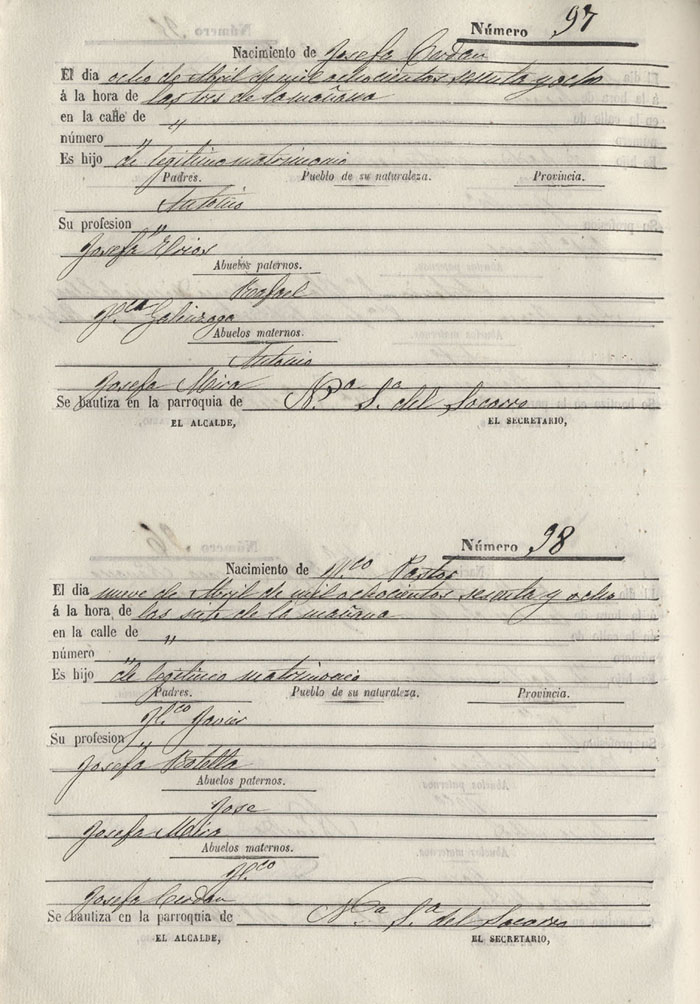 Número 97
Nacimiento de Josefa Cerdan
El dia ocho de Abril de mil ochocientos sesenta y ocho
á la hora de las tres de la mañana
en la calle de "
número "
Es hijo de legitimo matrimonio
Padres. Pueblo de su naturaleza. Provincia.
Antonio
Su profesion "
Josefa
Abuelos paternos.
Rafael
Fca
Abuelos maternos.
Antonio
Josefa Mira
Se bautiza en la parroquia de Na Sa del Socorro
EL ALCALDE, EL SECRETARIO,
Número 98
Nacimiento de Fco Pastor
El dia nueve de Abril de mil ochocientos sesenta y ocho
á la hora de las siete de la mañana
en la calle de "
número "
Es hijo de legitimo matrimonio
Padres. Pueblo de su naturaleza. Provincia.
Fco Javier
Su profesion "
Josefa Botella
Abuelos paternos.
Jose
Josefa
Abuelos maternos.
Fco
Josefa Cerdan
Se bautiza en la parroquia de Na Sa del Socorro
EL ALCALDE, EL SECRETARIO,